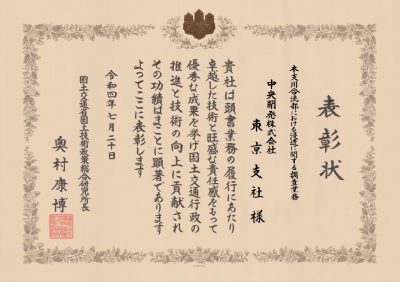 表彰状
本支川合流部における浸透に関する調査業務
中央開発株式会社
東京支社様
貴社は頭書業務の履行にあたり
卓越した技術と旺盛な責任感をもって
優秀な成果を挙げ国土交通行政の
推進と技術の向上に貢献され
その功績はまことに顕著であります
よってここに表彰します
令和四年七月二十日
国土交通省国土技術政策総合研究所長
奥村康博